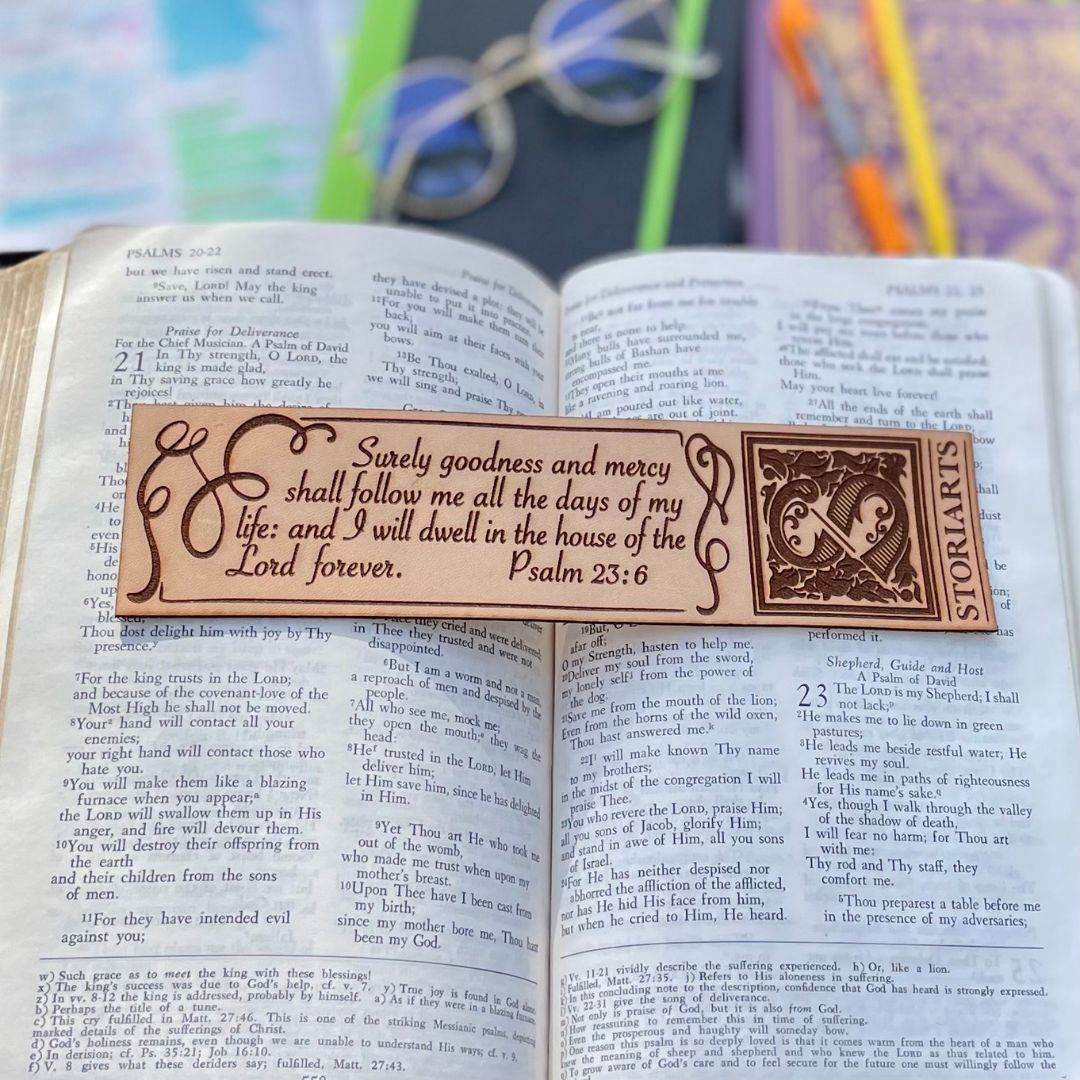 PSALMS 20-22
but we have risen and stand erect.
⁹Save, LORD! May the king
answer us when we call.
Praise for Deliverance
For the Chief Musician. A Psalm of David
21 In Thy strength, O LORD, the
king is made glad,
in Thy saving grace how greatly he
rejoices!
and
Thou
⁴He
to
even
⁵His
de
hono
up
⁶Yes,
Thou dost delight him with joy by Thy
presence.ʸ
⁷For the king trusts in the LORD;
and because of the covenant-love of the
Most High he shall not be moved.
⁸Yourᶻ hand will contact all your
enemies;
your right hand will contact those who
hate you.
⁹You will make them like a blazing
furnace when you appear;ᵃ
the LORD will swallow them up in His
anger, and fire will devour them.
¹⁰You will destroy their offspring from
the earth
and their children from the sons
of men.
¹¹For they have intended evil
against you;
they have devised a plot; they will be
unable to put it into practice.
¹²For you will make them turn their
back;
you will aim at their faces with your
bows.
¹³Be Thou exalted, O LORD, in
Thy strength;
we will sing and praise Thy
Surely goodness and mercy
shall follow me all the days of my
life: and I will dwell in the house of the
Lord forever. Psalm 23:6
STORIARTS
they cried and were delivered,
in Thee they trusted and were not
disappointed.
⁶But I am a worm and not a man,
a reproach of men and despised by the
people.
⁷All who see me, mock me;
they open the mouth;ᵉ they wag the
head:
⁸Heᶠ trusted in the LORD, let Him
deliver him;
let Him save him, since he has delighted
in Him.
⁹Yet Thou art He who took me
out of the womb,
who made me trust when upon my
mother's breast.
¹⁰Upon Thee have I been cast from
my birth;
since my mother bore me, Thou hast
been my God.
w) Such grace as to meet the king with these blessings!
x) The king's success was due to God's help, cf. v. 7. y) True joy is found in God alone.
z) In vv. 8-12 the king is addressed, probably by himself. a) As if they were in a blazing furnace.
b) Perhaps the title of a tune.
c) This cry fulfilled in Matt. 27:46. This is one of the striking Messianic psalms, depicting
marked details of the sufferings of Christ.
d) God's holiness remains, even though we are unable to understand His ways; cf. v. 9.
e) In derision; cf. Ps. 35:21; Job 16:10.
f) V. 8 gives what these deriders say; fulfilled, Matt. 27:43.
there is none to help.
Many bulls have surrounded me,
bulls of Bashan have
encompassed me.
They open their mouths at me
like a ravening and roaring lion.
I am poured out like water,
are out of joint.
¹⁹But,
afar off;
O my Strength, hasten to help me.
²⁰Deliver my soul from the sword,
my lonely self from the power of
the dog.
²¹Save me from the mouth of the lion;
Even from the horns of the wild oxen,
Thou hast answered me.ᵏ
²²I will make known Thy name
to my brothers;
in the midst of the congregation I will
praise Thee.
²³You who revere the LORD, praise Him;
all you sons of Jacob, glorify Him;
and stand in awe of Him, all you sons
of Israel.
²⁴For He has neither despised nor
abhorred the affliction of the afflicted,
nor has He hid His face from him,
but when he cried to Him, He heard.
May your heart live forever!
²⁷All the ends of the earth shall
remember and turn to the LORD;
bow
shall
dust
be
of
has
performed it.
Shepherd, Guide and Host
A Psalm of David
23 The LORD is my Shepherd; I shall
not lack;ᵖ
²He makes me to lie down in green
pastures;
³He leads me beside restful water; He
revives my soul.
He leads me in paths of righteousness
for His name's sake.q
⁴Yes, though I walk through the valley
of the shadow of death,
I will fear no harm; for Thou art
with me:
Thy rod and Thy staff, they
comfort me.
⁵Thou preparest a table before me
in the presence of my adversaries;
Vv. 11-21 vividly describe the suffering experienced. h) Or, like a lion.
Fulfilled, Matt. 27:35. j) Refers to His aloneness in suffering.
In this concluding note to the description, confidence that God has heard is strongly expressed.
Vv. 22-31 give the song of deliverance.
Not only is praise of God, but it is also from God.
How reassuring to remember this in time of suffering.
Even the prosperous and haughty will someday bow.
One reason this psalm is so deeply loved is that it comes warm from the heart of a man who
knew the meaning of sheep and shepherd and who knew the LORD as thus related to him.
To grow aware of God's care and to feel secure for the future one must willingly follow the